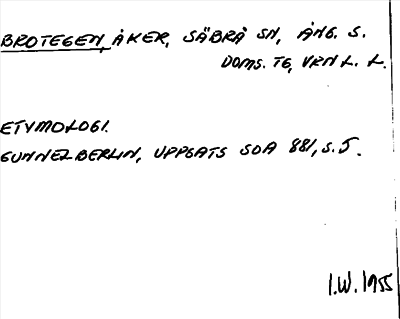 BROTEGEN, ÅKER, SÄBRÅ SN, ÅNG. S.
DOMS. TG, VRN L. L.
ETYMOLOGI.
GUNNEL BERLIN, UPPGATS SOA 881, S. 5.
I.W. 1955